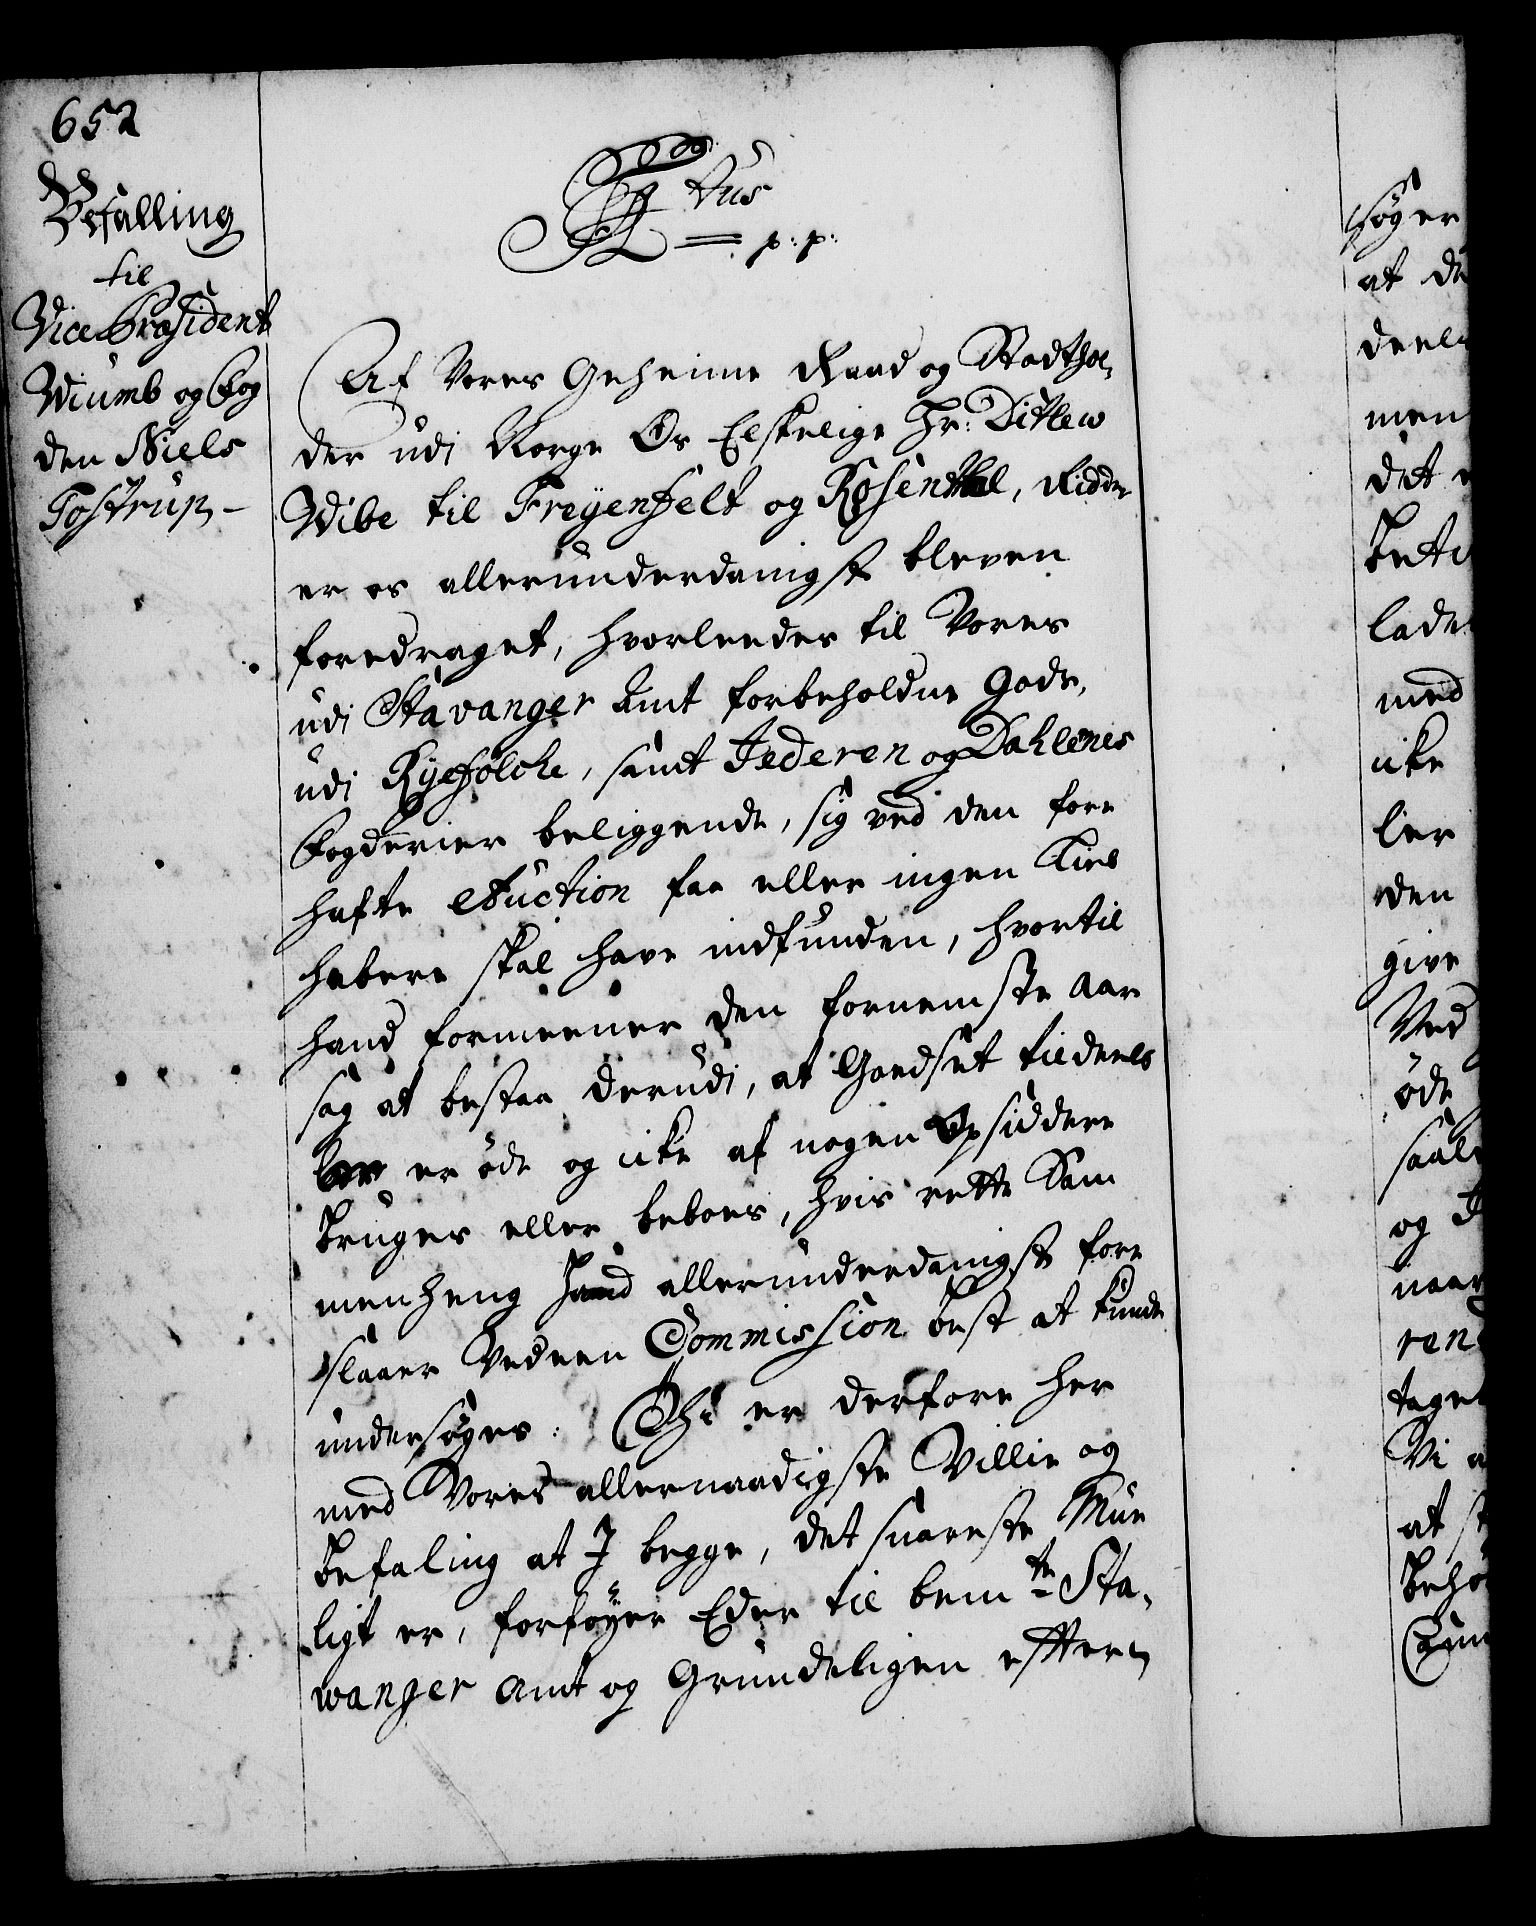 652
Befalling
til
Vice Præsident
Wiumb og Fog
den Niels
Tostrup -
tus
p: p:
Af Vores Geheime Raad og Stadthol,
der udi Norge Os Elskelige Hr: Ditlew
Wibe til Freyenfelt og Rosenthal, Ridder
er os allerunderdanigst bleven
foredraget, hvorleedes til Vores
udi Stavanger Amt forbeholdne Gods,
udi Ryefølche, samt Jederen og Dahlenes
Fogderier beliggende, sig ved den fore
hafte Auction faa eller ingen Lieb
habere skal have indfunden, hvortil
hand formeener den fornemste Aar
sag at bestaa derudi, at Goedset tildeels
er øde og icke af nogen Opsiddere
bruges eller beboes, hvis rette Sam
menheng hand allerunderdanigst fore
slaaer Ved een Commission best at kunde
undersøges: Thi er derfore her
med Vores allernaadigste Villie og
befaling at I begge, det snareste Mue
ligt er, forføyer Eder til bem.te Sta,
wanger Amt og Grundeligen efter,
søger
at
men
det
lade
med
icke
ler
den
give
Ved
øde
og
Vi
at